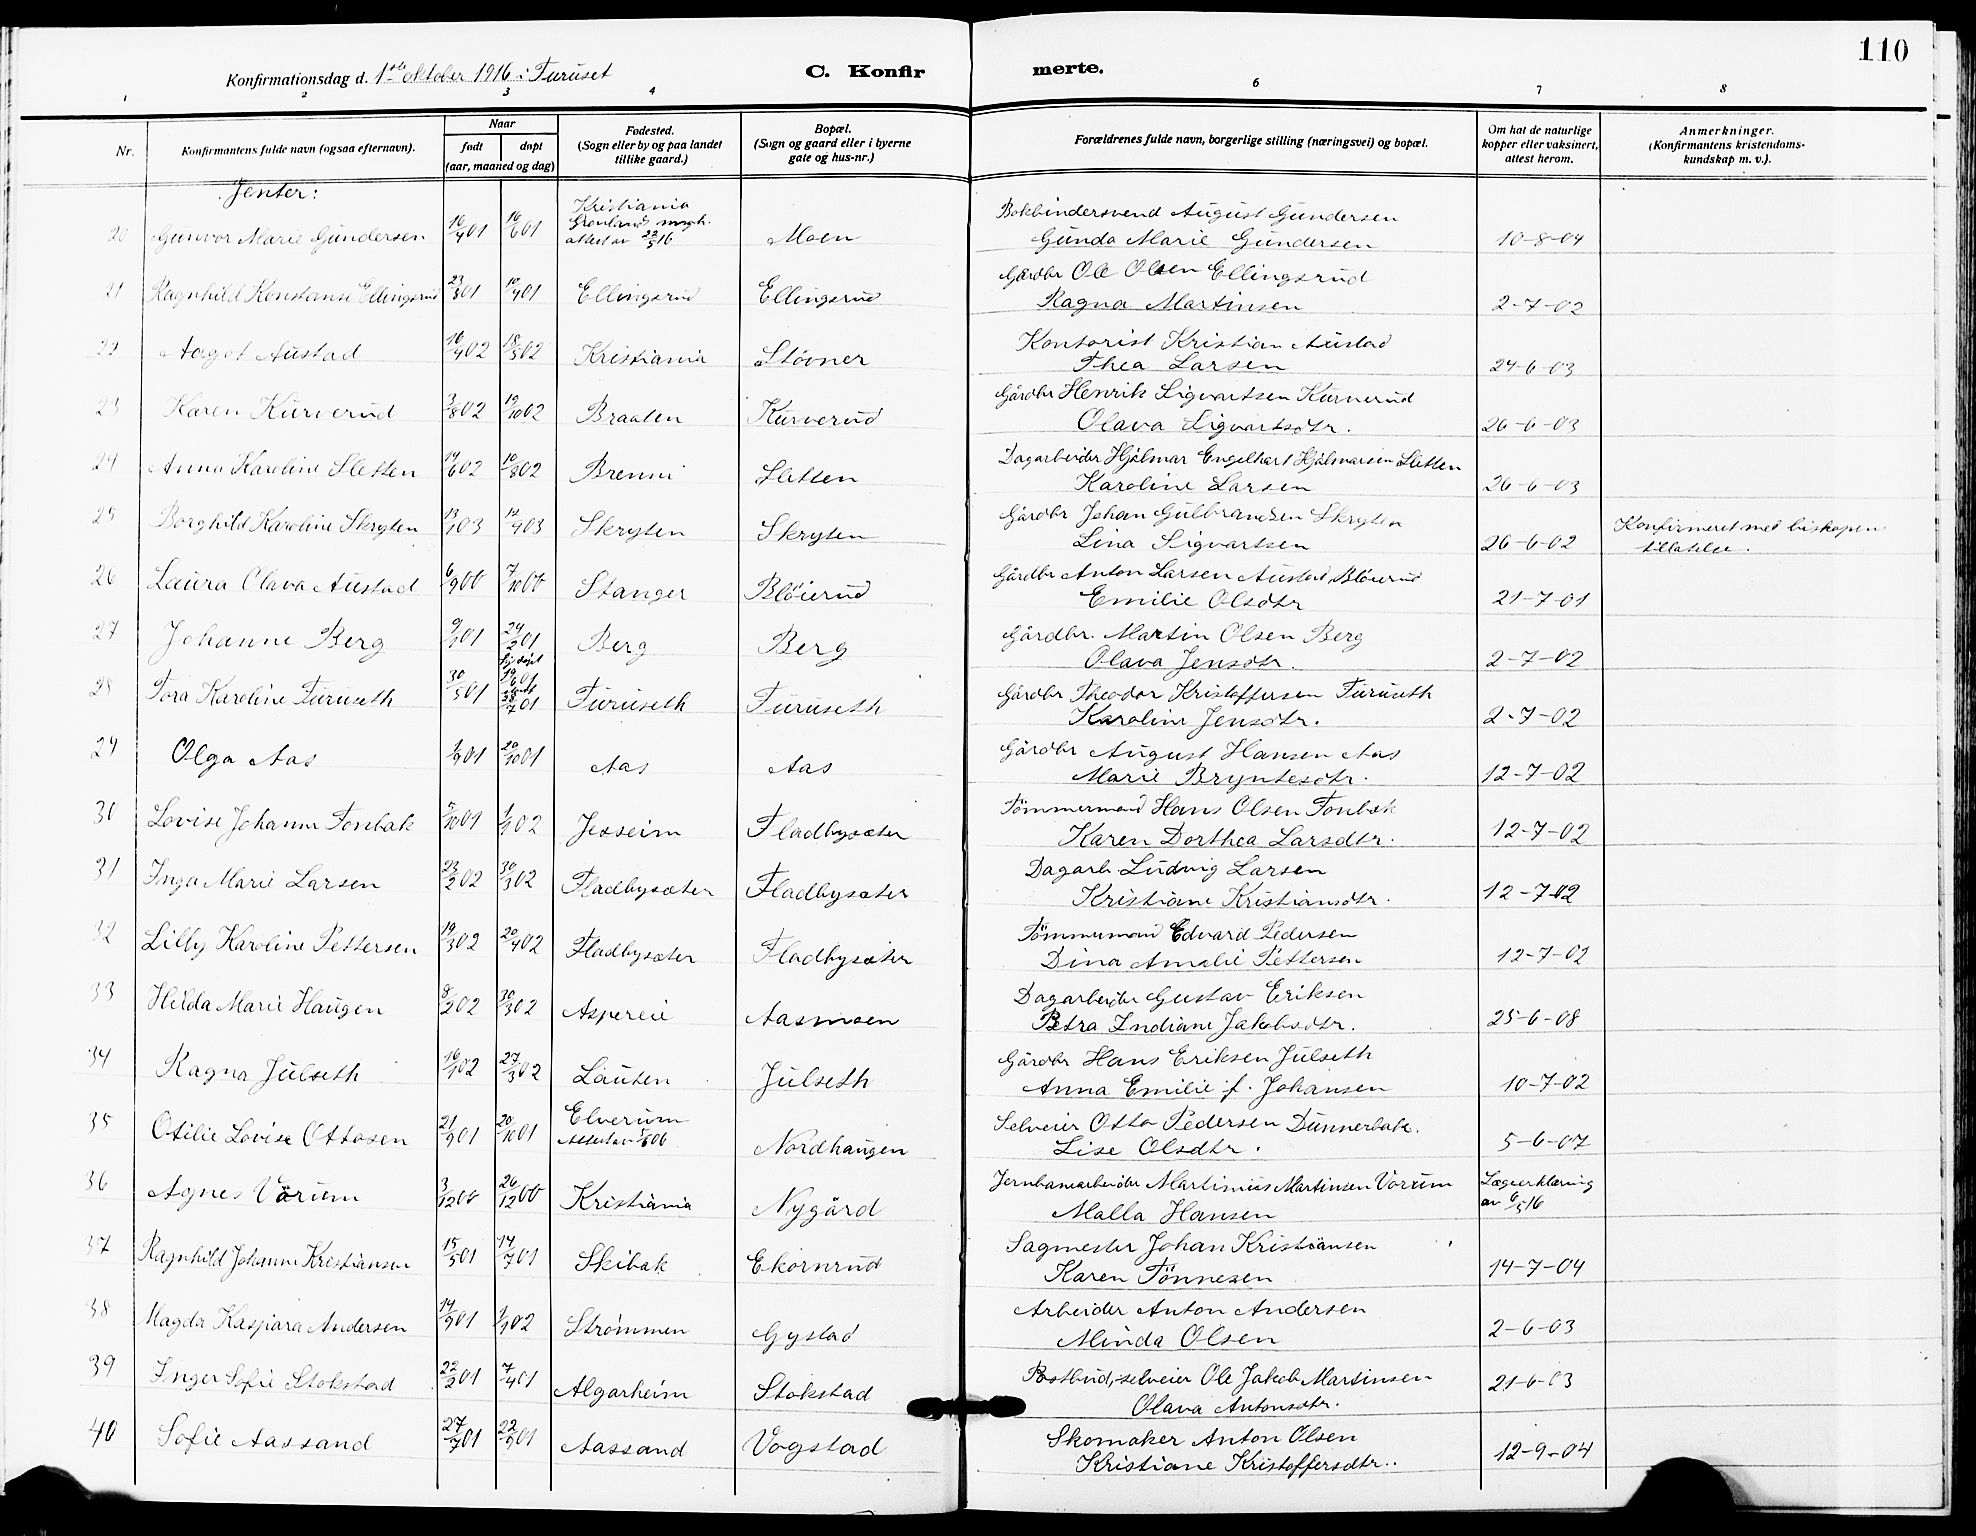 110
Konfirmationsdag d. 1ste oktober 1916 i Furuset
C. Konfir merte.
1 2 3 4 6 7 8
Nr.
Konfirmantens fulde navn (ogsaa efternavn).
Naar
født døpt
(aar, maaned og dag)
Fødested.
(Sogn eller by og paa landet
tillike gaard.)
Bopæl.
(Sogn og gaard eller i byerne
gate og hus-nr.)
Forældrenes fulde navn, borgerlige stilling (næringsvei) og bopæl.
Om hat de naturlige
kopper eller vaksinert,
attest herom.
Anmerkninger.
(Konfirmantens kristendoms-
kundskap m. v.).
Jenter:
20 Gunvor Marie Gundersen 16/4 01 16/6 01 Kristiania Grønland attest av 22/5 16 Moen Bokbindersvend August Gundersen
Gunda Marie Gundersen 10-8-04
21 Ragnhild Konstanse Ellingsrud 23/3 01 10/4 01 Ellingsrud Ellingsrud Gårdbr Ole Olsen Ellingsrud
Ragna Martinsen 2-7-02
22 Aagot Austad 16/4 02 18/5 02 Kristiania Støvner Kontorist Kristian Austad
Thea Larsen 24-6-03
23 Karen Kurverud 3/8 02 19/10 02 Braaten Kurverud Gårdbr Henrik Sigvartsen Kurverud
Olava Sigvartsdtr. 26-6-03
24 Anna Karoline Sletten 14/6 02 10/8 02 Brenni Sletten Dagarbeider Hjalmar Engelhart Hjalmarsen Sletten
Karoline Larsen 26-6-03
25 Borghild Karoline Skryten 13/1 03 12/4 03 Skryten Skryten Gårdbr Johan Gulbrandsen Skryten
Lina Sigvartsen 26-6-02 Konfirmeret med biskopen
tillatelse.
26 Laura Olava Austad 6/9 00 7/10 00 Stanger Bløierud Gårdbr Anton Larsen Austad, Bløierud
Emilie Olsdtr 21-7-01
27 Johanne Berg 9/1 01 24/2 01 Berg Berg Gårdbr. Martin Olsen Berg
Olava Jensdtr. 2-7-02
28 Tora Karoline Furuseth 30/5 01 hj. døpt 19/6 01 28/7 01 Furuseth Furuseth Gårdbr Theodor Kristoffersen Furuseth
Karoline Jensdtr. 2-7-02
29 Olga Aas 1/9 01 20/10 01 Aas Aas Gårdbr August Hansen Aas
Marie Bryntesdtr. 12-7-02
30 Lovise Johanne Tonbak 5/10 01 1/1 02 Jesseim Fladbysæter Tømmermand Hans Olsen Tonbæk
Karen Dorthea Larsdtr. 12-7-02
31 Inga Marie Larsen 23/2 02 30/3 02 Fladbysæter Fladbysæter Dagarb Ludvig Larsen
Kristiane Kristiansdtr. 12-7-02
32 Lilly Karoline Pettersen 19/3 02 20/4 02 Fladbysæter Fladbysæter Tømmermand Edvard Pedersen
Dina Amalie Pettersen 12-7-02
33 Hilda Marie Haugen 8/2 02 30/3 02 Aspereie Aasmoen Dagarbeider Gustav Eriksen
Petra Indiane Jakobsdtr. 25-6-08
34 Ragna Julseth 16/1 02 27/3 02 Lauten Julseth Gårdbr Hans Eriksen Julseth
Anna Emilie f. Johansen 10-7-02
35 Otilie Lovise Ottosen 21/9 01 20/10 01 Elverum Nordhaugen Selveier Otto Pedersen Dunnerbak.
Lise Olsdtr. 5-6-07
36 Agnes Vorum 3/12 00 26/12 00 Kristiania Nygård Jernbanearbeider Martinius Martinsen Vorum Lægeerklæring
Malla Hansen av 6/5 16
37 Ragnhild Johanne Kristiansen 15/5 01 14/7 01 Skibak Ekornrud Sagmester Johan Kristiansen
Karen Tønnesen 14-7-04
38 Magda Kaspara Andersen 14/9 01 1/1 02 Strømmen Gystad Arbeider Anton Andersen
Minda Olsen 2-6-03
39 Inger Sofie Stokstad 22/2 01 7/4 01 Algarheim Stokstad Postbud, selveier Ole Jakob Martinsen
Olava Antonsdtr. 21-6-03
40 Sofie Aassand 27/7 01 22/9 01 Aassand Vogstad Skomaker Anton Olsen
Kristiane Kristoffersdtr.. 12-9-04